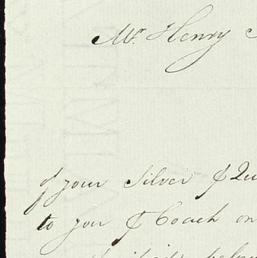 Mr. Henry
of your Silver & Qu
to you & Coach on